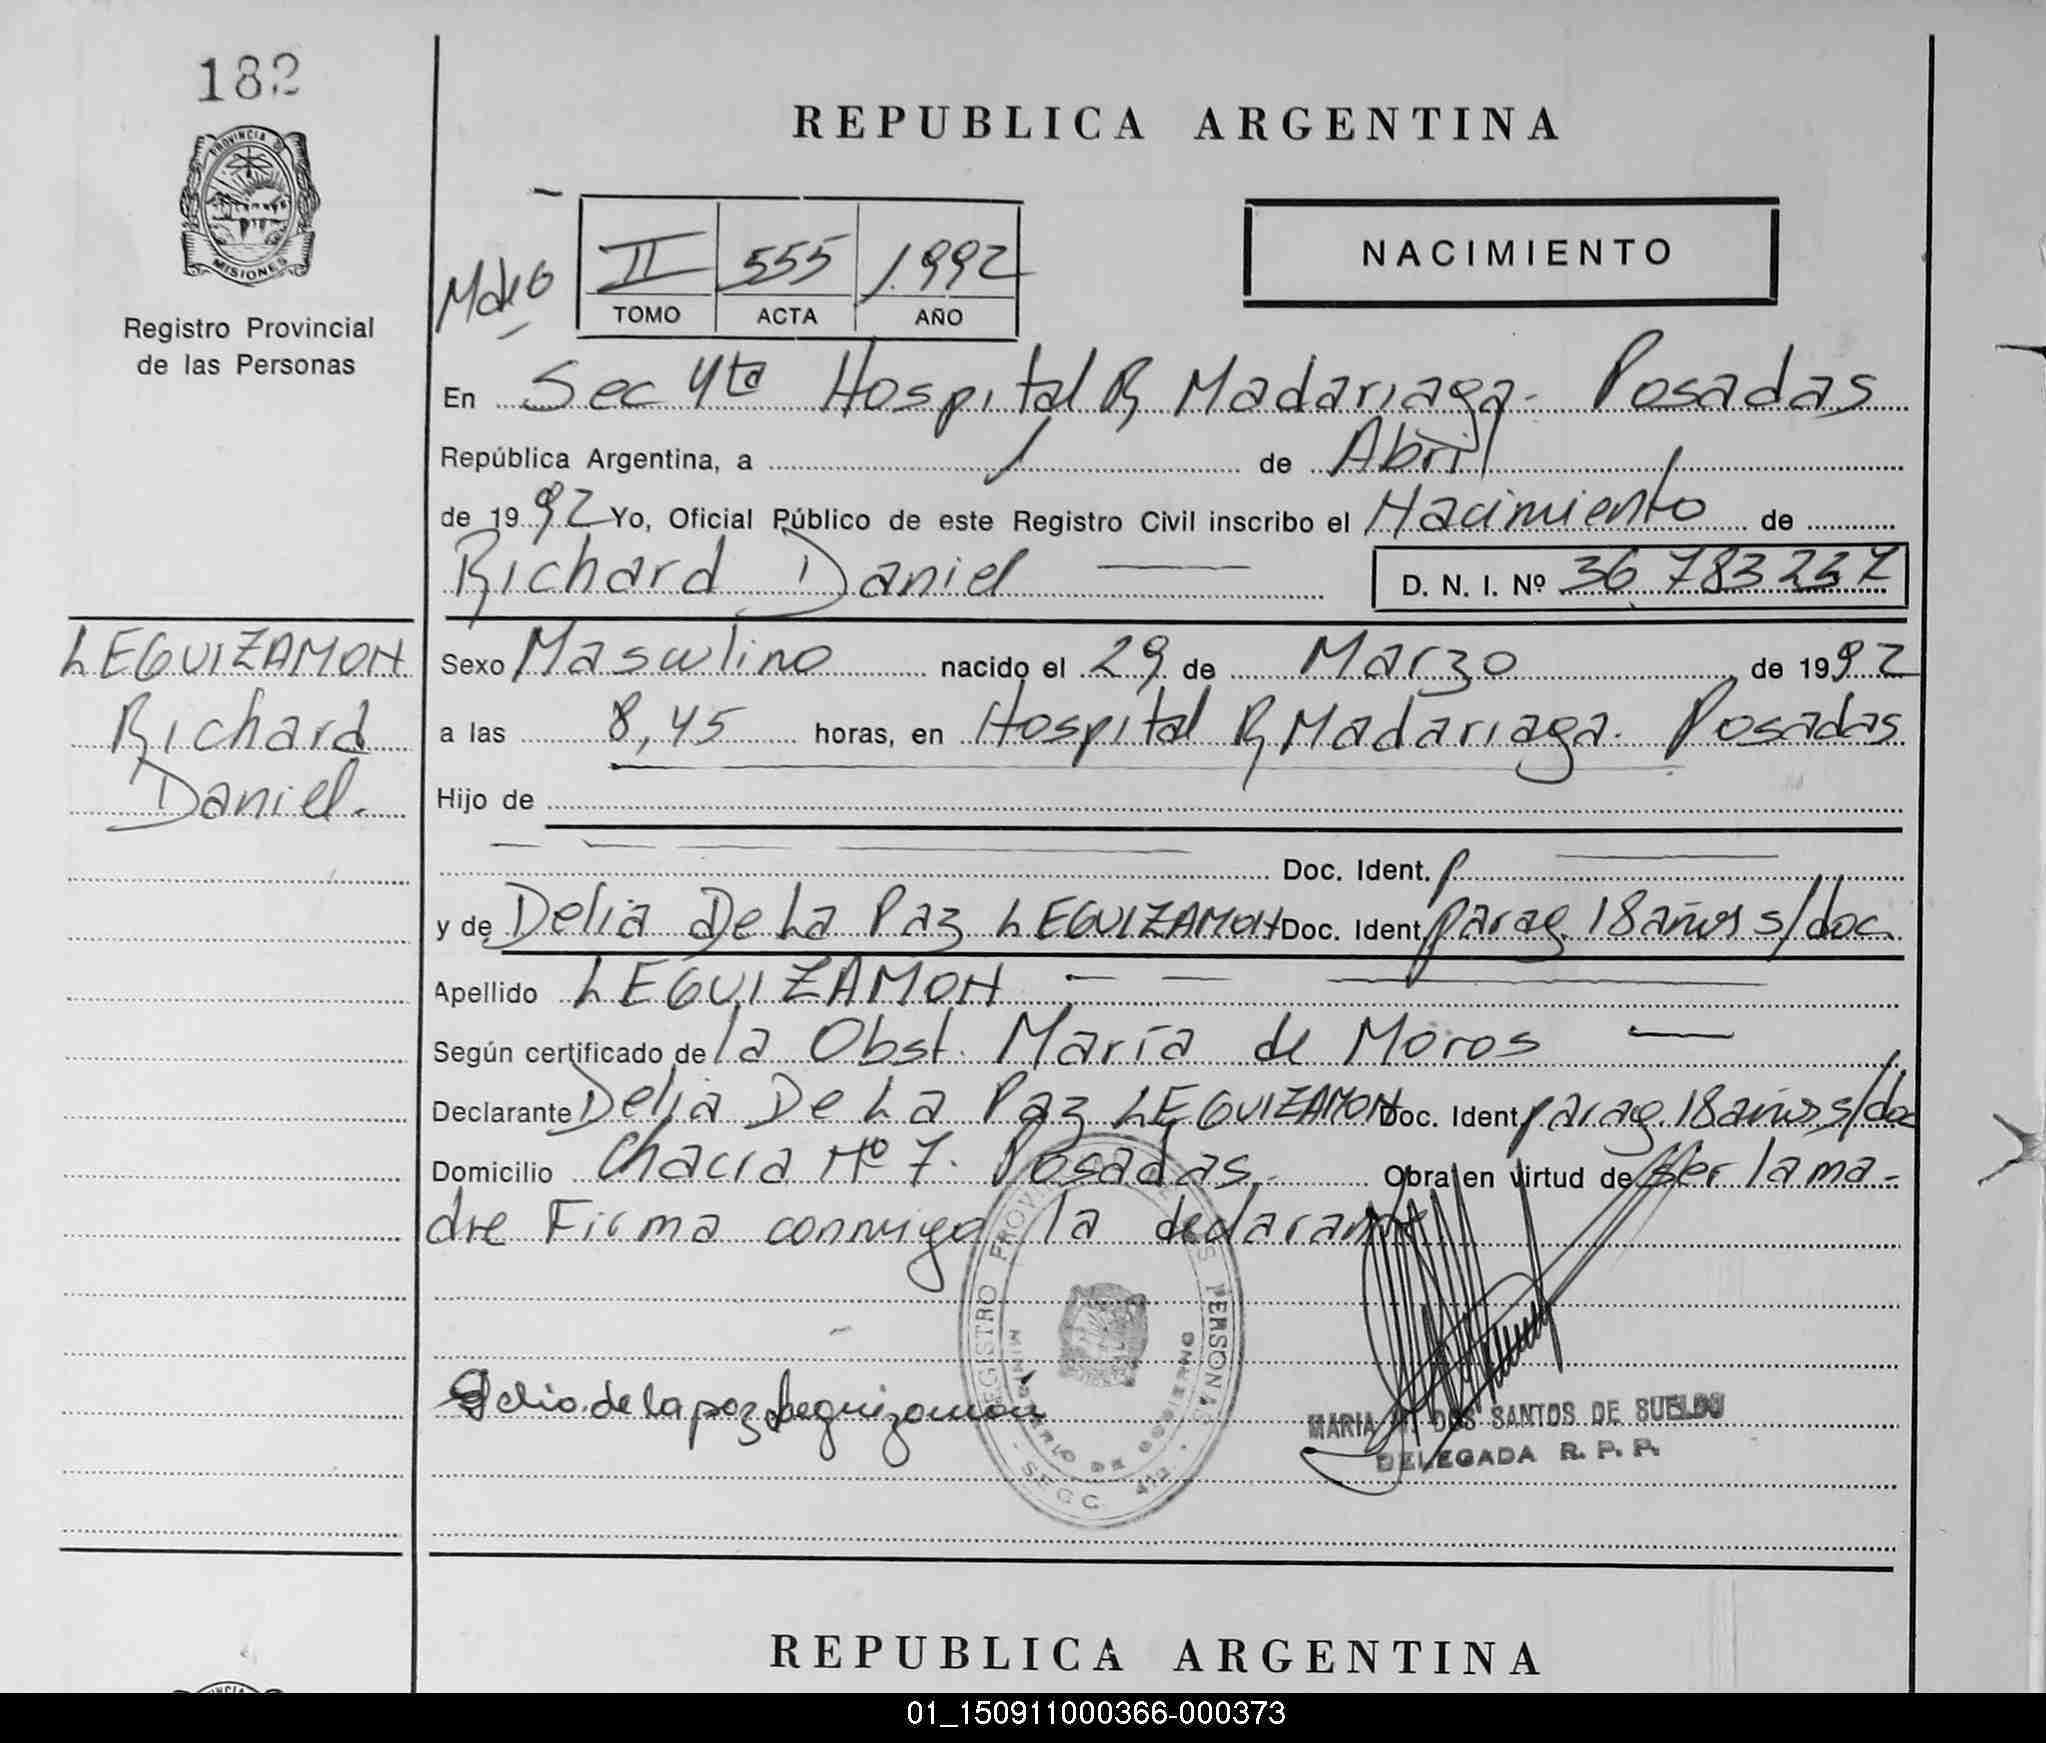 182
PROVINCIA DE
MISIONES
Registro Provincial
de las Personas
LEGUIZAMON
Richard
Daniel.
REPUBLICA ARGENTINA
II 555 1.992
TOMO ACTA AÑO
NACIMIENTO
En Sec 4ta Hospital R. Madariaga - Posadas
República Argentina, a 1 de Abril
de 1992 Yo, Oficial Público de este Registro Civil inscribo el Nacimiento de
Richard Daniel D. N. I. Nº 36.783.237
Sexo Masculino nacido el 29 de Marzo de 1992
a las 8,45 horas, en Hospital R. Madariaga. Posadas
Hijo de
Doc. Ident.
y de Delia De La Paz LEGUIZAMON Doc. Ident. parag. 18 años s/doc.
Apellido LEGUIZAMON
Según certificado de la Obst. María de Moros
Declarante Delia De La Paz LEGUIZAMON Doc. Ident. parag. 18 años s/doc
Domicilio Chacra Nº 7. Posadas. Obra en virtud de ser la ma-
dre Firma conmigo la declarante
REGISTRO PROVINCIAL DE LAS PERSONAS
MINISTERIO DE GOBIERNO
SECC. 4ta.
Delia de la paz Leguizamon
MARIA DOS SANTOS DE SUELDO
DELEGADA R. P. P.
REPUBLICA ARGENTINA
01_150911000366-000373